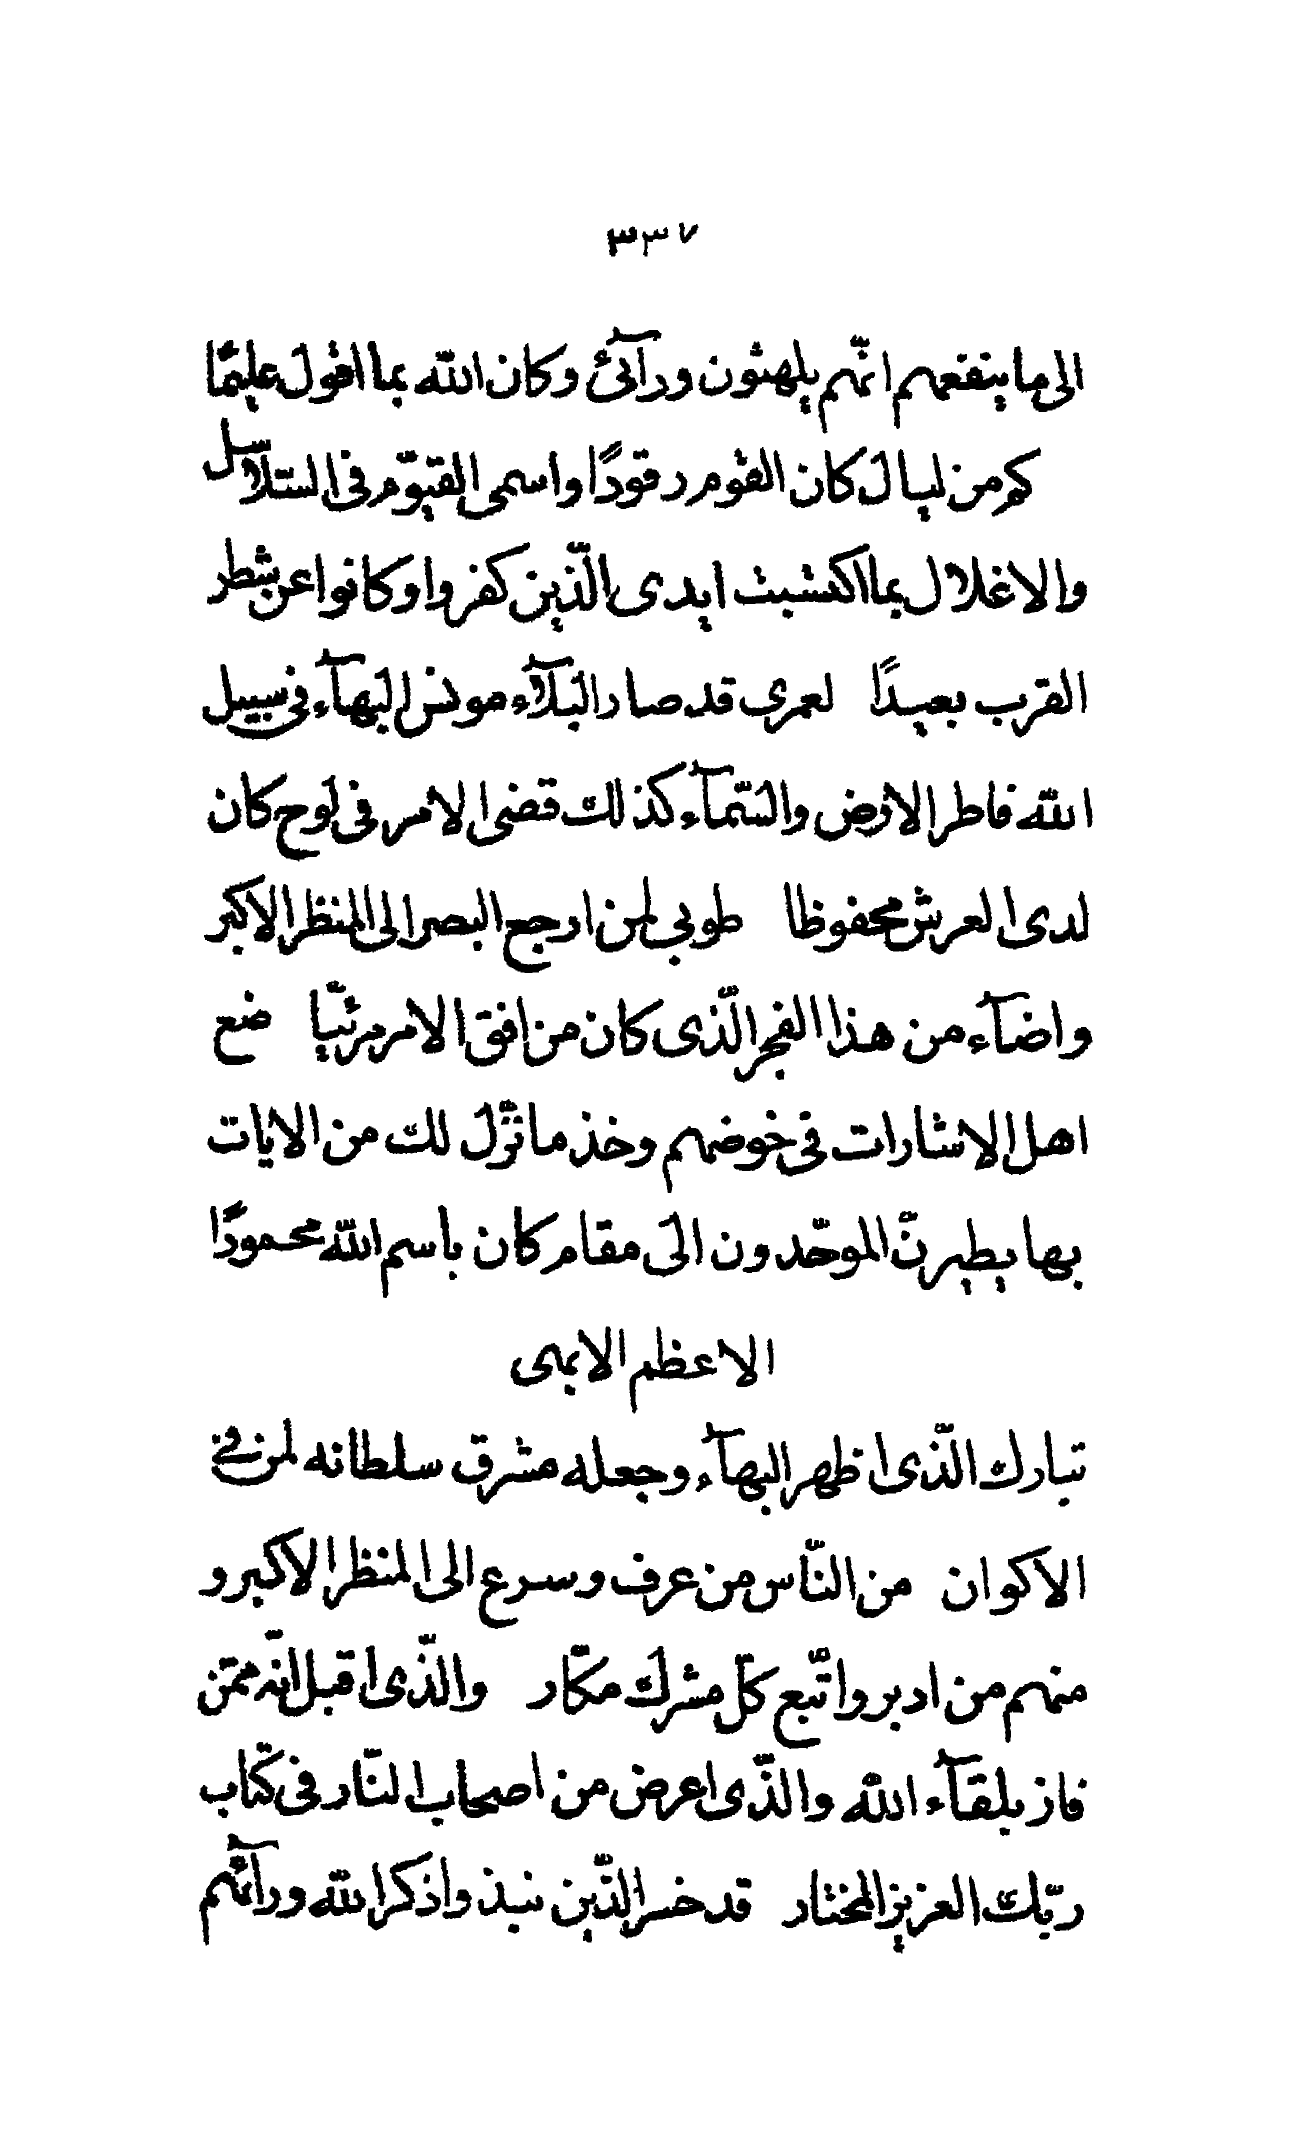 ٣٣٧
الى ما ينفعهم انّهم يلهثون ورآئى وكان الله بما اقول عليمًا
كم من ليال كان القوم رقودًا واسمى القيّوم فى السّلاسل
والاغلال بما اكتسبت ايدى الّذين كفروا وكانوا عن شطر
القرب بعيدًا لعمرى قد صار البلآء مونس البهآء فى سبيل
الله فاطر الارض والسّمآء كذلك قضى الامر فى لوح كان
لدى العرش محفوظا طوبى لمن ارجع البصر الى المنظر الاكبر
واضآء من هذا الفجر الّذى كان من افق الامر مرئيّا ضع
اهل الاشارات فى خوضهم وخذ ما نزّل لك من الايات
بها يطيرنّ الموحّدون الى مقام كان باسم الله محمودًا
الاعظم الابهى
تبارك الّذى اظهر البهآء وجعله مشرق سلطانه لمن فى
الاكوان من النّاس من عرف وسرع الى المنظر الاكبر و
منهم من ادبر واتّبع كلّ مشرك مكّار والّذى اقبل انّه ممّن
فاز بلقآء الله والّذى اعرض من اصحاب النّار فى كتاب
ربّك العزيز المختار قد خسر الّذين نبذوا ذكر الله ورآئهم